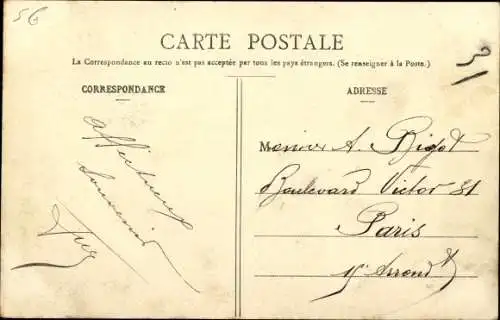 56
CARTE POSTALE
La Correspondance au recto n'est pas acceptée par tous les pays étrangers. (Se renseigner à la Poste.)
CORRESPONDANCE
Affectueux
Souvenir
ADRESSE
Monsieur A. Bigot
Boulevard Victor 81
Paris
Arrondt